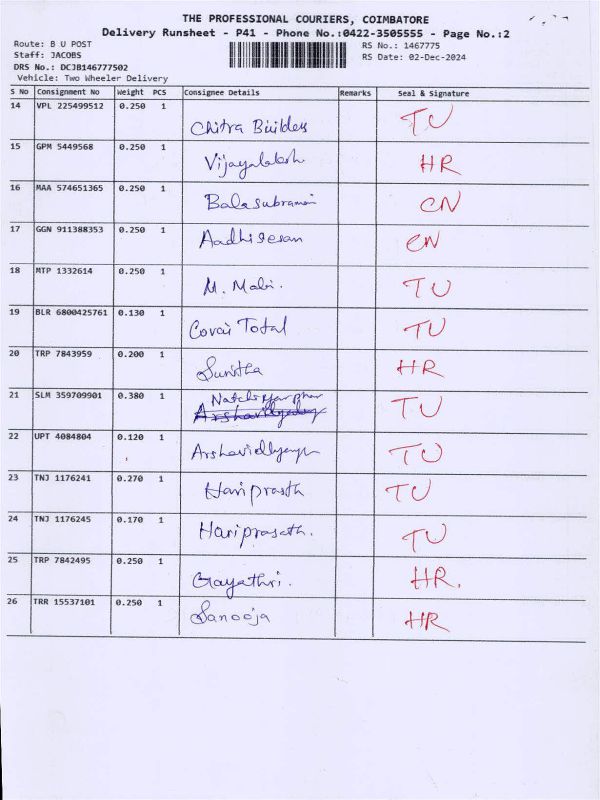 THE PROFESSIONAL COURIERS, COIMBATORE
Delivery Runsheet - P41 - Phone No.:0422-3505555 - Page No.:2
Route: B U POST RS No.: 1467775
Staff: JACOBS RS Date: 02-Dec-2024
DRS No.: DCJB146777502
Vehicle: Two Wheeler Delivery
S No Consignment No Weight PCS Consignee Details Remarks Seal & Signature
14 VPL 225499512 0.250 1 Chitra Builders TU
15 GPM 5449568 0.250 1 HR
16 MAA 574651365 0.250 1 CN
17 GGN 911388353 0.250 1 Aadhigesan CN
18 MTP 1332614 0.250 1 M. Mabi. TU
19 BLR 6800425761 0.130 1 Covai Total TU
20 TRP 7843959 0.200 1 Sunitha HR
21 SLM 359709901 0.380 1 TU
22 UPT 4084804 0.120 1 TU
23 TNJ 1176241 0.270 1 Hariprasth TU
24 TNJ 1176245 0.170 1 Hariprasath. TU
25 TRP 7842495 0.250 1 Gayathri. HR.
26 TRR 15537101 0.250 1 Sanooja HR